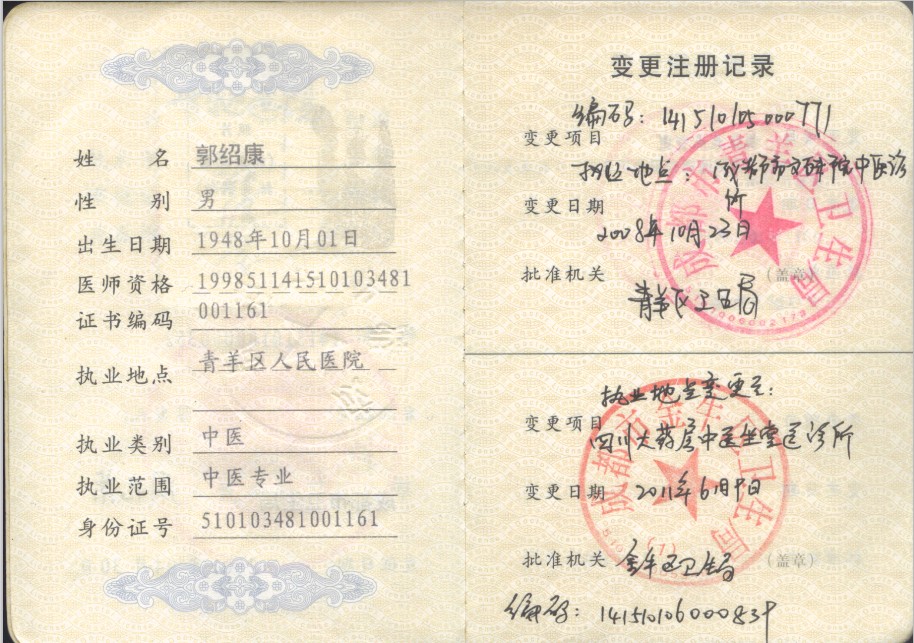 姓 名 郭绍康
性 别 男
出生日期 1948年10月01日
医师资格 199851141510103481
证书编码 001161
执业地点 青羊区人民医院
执业类别 中医
执业范围 中医专业
身份证号 510103481001161
变更注册记录
编码：141510105000771
变更项目
执业地点：成都市文殊院中医诊
所
变更日期
2008年10月23日
批准机关 （盖章）
青羊区卫生局
执业地点变更至：
变更项目
四川大药房中医坐堂医诊所
变更日期 2011年6月9日
批准机关 金牛区卫生局 （盖章）
编码：141510106000839
成都市青羊区卫生局
成都市金牛区卫生局
(1)